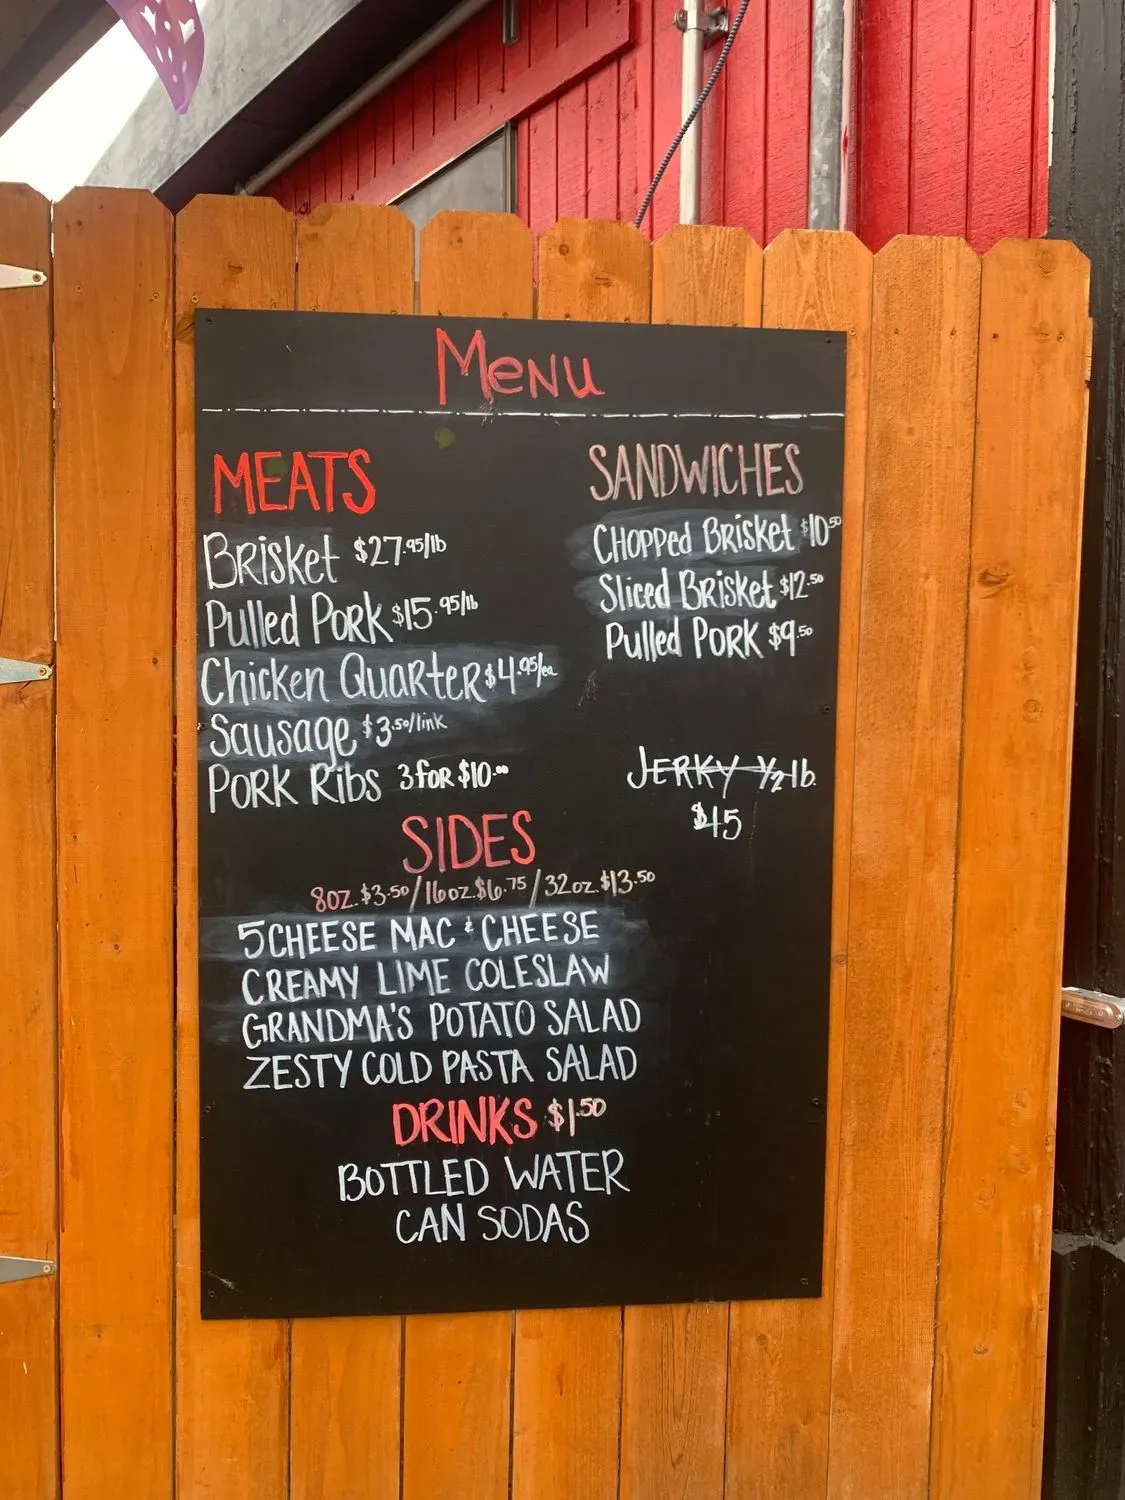 Menu
MEATS
Brisket $27.95/lb
Pulled Pork $15.95/lb
Chicken Quarter $4.95/ea
Sausage $3.50/link
Pork Ribs 3 for $10.00
SANDWICHES
Chopped Brisket $10.50
Sliced Brisket $12.50
Pulled Pork $9.50
JERKY 1/2 lb.
$45
SIDES
8oz. $3.50/16oz. $6.75/32oz. $13.50
5 CHEESE MAC & CHEESE
CREAMY LIME COLESLAW
GRANDMA'S POTATO SALAD
ZESTY COLD PASTA SALAD
DRINKS $1.50
BOTTLED WATER
CAN SODAS